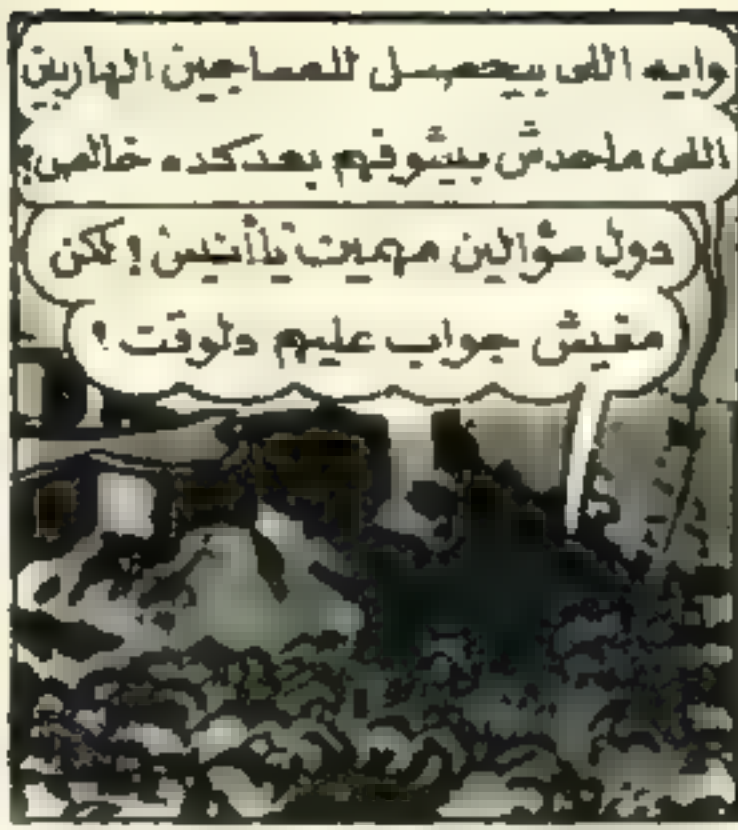 وايه اللى بيحصل للمساجين الهاربين
اللى ماحدش بيشوفهم بعد كده خالص؟
دول سؤالين مهمين ياأنيس! لكن
مفيش جواب عليهم دلوقت!